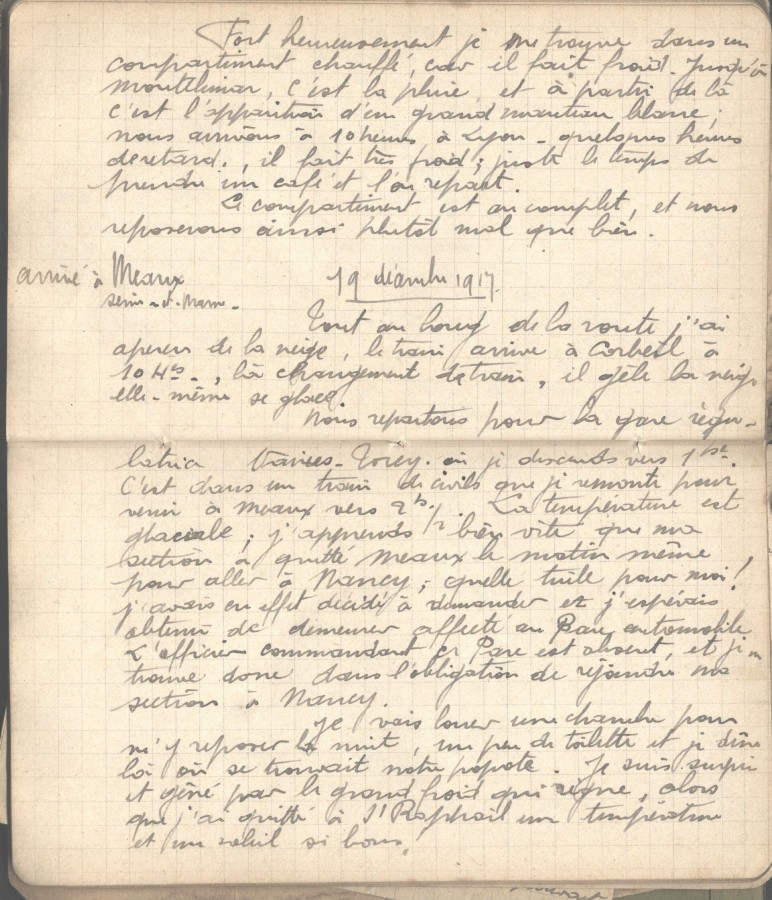 Fort heureusement je me trouve dans un
compartiment chauffé, car il fait froid. Jusqu'à
Montélimar, c'est la pluie, et à partir de là
c'est l'apparition d'un grand manteau blanc;
nous arrivons à 10 heures à Lyon - quelques heures
de retard., il fait très froid; juste le temps de
prendre un café et l'on repart.
Le compartiment est au complet, et nous
reposerons ainsi plutôt mal que bien.
arrivé à Meaux 19 décembre 1917.
Seine-et-Marne.
Tout au long de la route j'ai
aperçu de la neige, le train arrive à Corbeil à
10 Hes., là changement de train, il gèle la neige
elle-même se glace
Nous repartons pour la gare régu-
latrice Vaires-Torcy. où je descends vers 1 he.
C'est dans un train de civils que je remonte pour
venir à Meaux vers 2 hs 1/2. La température est
glaciale; j'apprends bien vite que ma
section a quitté Meaux le matin même
pour aller à Nancy; quelle tuile pour moi!
j'avais en effet décidé à demander et j'espérais
obtenir de demeurer affecté au Parc automobile
L'officier commandant ce Parc est absent, et je m
trouve donc dans l'obligation de rejoindre ma
section à Nancy.
Je vais louer une chambre pour
m'y reposer la nuit, un peu de toilette et je dîne
là où se trouvait notre popote. Je suis surpris
et gêné par le grand froid qui règne, alors
que j'ai quitté à St Raphaël une température
et un soleil si bons.